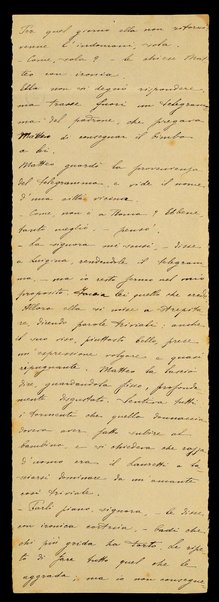 Per quel giorno ella non ritornò.
Venne l'indomani, sola.
- Come, sola? - le chiese Mat-
teo con ironia.
Ella non si degnò rispondere,
ma trasse fuori un telegram-
ma del padrone, che pregava
Matteo di consegnar il bimbo
a lei.
Matteo guardò la provenienza
del telegramma e vide il nome
d'una città vicina.
- Come non è a Roma? Ebbene
tanto meglio, - pensò.
- La signora mi scusi, - disse
a Luigina, rendendole il telegram
ma, - ma io resto fermo nel mio
proposito. Faccia lei quello che crede.
Allora ella si mise a strepita-
re, dicendo parole triviali: anche
il suo viso, piuttosto bello, prese
un'espressione volgare e quasi
ripugnante. Matteo la lasciò
dire, guardandola fisso, profonda
mente disgustato. Sentiva tutti
i tormenti che quella donnaccia
doveva aver fatto subire al
bambino, e si chiedeva che razza
d'uomo era il Lauretti a la-
sciarsi dominare da un'amante
così triviale.
- Parli piano, signora, - le disse
con ironica cortesia. - Badi che
chi più grida ha torto. Le ripe-
to di fare tutto quel che le
aggrada; ma io non consegne-